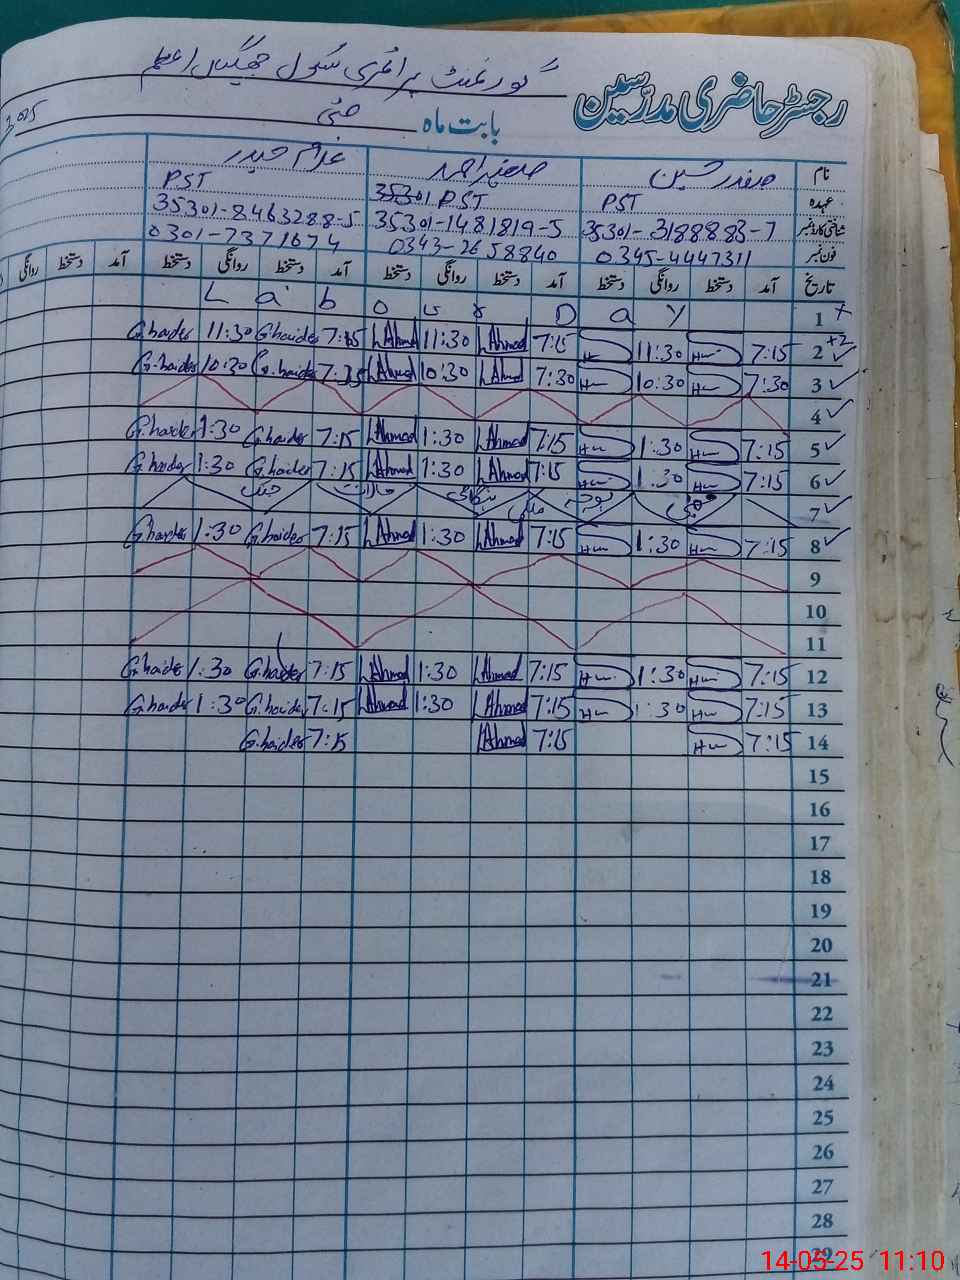 رجسٹر حاضری مدرسین گورنمنٹ پرائمری سکول
بابت ماہ مئی
نام صفدر حسین صغیر احمد غلام حیدر
عہدہ PST PST PST
شناختی کارڈ نمبر 35301-3188883-7 35301-1481819-5 35301-8463288-5
فون نمبر 0345-4447311 0343-2658840 0301-7371674
تاریخ آمد دستخط روانگی دستخط آمد دستخط روانگی دستخط آمد دستخط روانگی دستخط آمد دستخط روانگی
1 L a b o u r D a y
2 +2 7:15 11:30 7:15 Ahmad 11:30 Ahmad 7:15 Ghaider 11:30 Ghaider
3 7:30 10:30 7:30 Ahmad 10:30 Ahmad G.haider 10:30 G.haider
4
5 7:15 1:30 7:15 Ahmad 1:30 Ahmad 7:15 Ghaider 1:30 G.haider
6 7:15 1:30 7:15 Ahmad 1:30 Ahmad 7:15 G.haider 1:30 Ghaider
7 چھٹی بوجہ ہنگامی حالات جنگ
8 7:15 1:30 7:15 Ahmad 1:30 Ahmad 7:15 Ghaider 1:30 Ghaider
9
10
11
12 7:15 1:30 7:15 Ahmad 1:30 Ahmad 7:15 Ghaider 1:30 Ghaider
13 7:15 1:30 7:15 Ahmad 1:30 Ahmad 7:15 G.haider 1:30 G.haider
14 7:15 7:15 Ahmad 7:15 G.haider
15
16
17
18
19
20
21
22
23
24
25
26
27
28
29
14-05-25 11:10